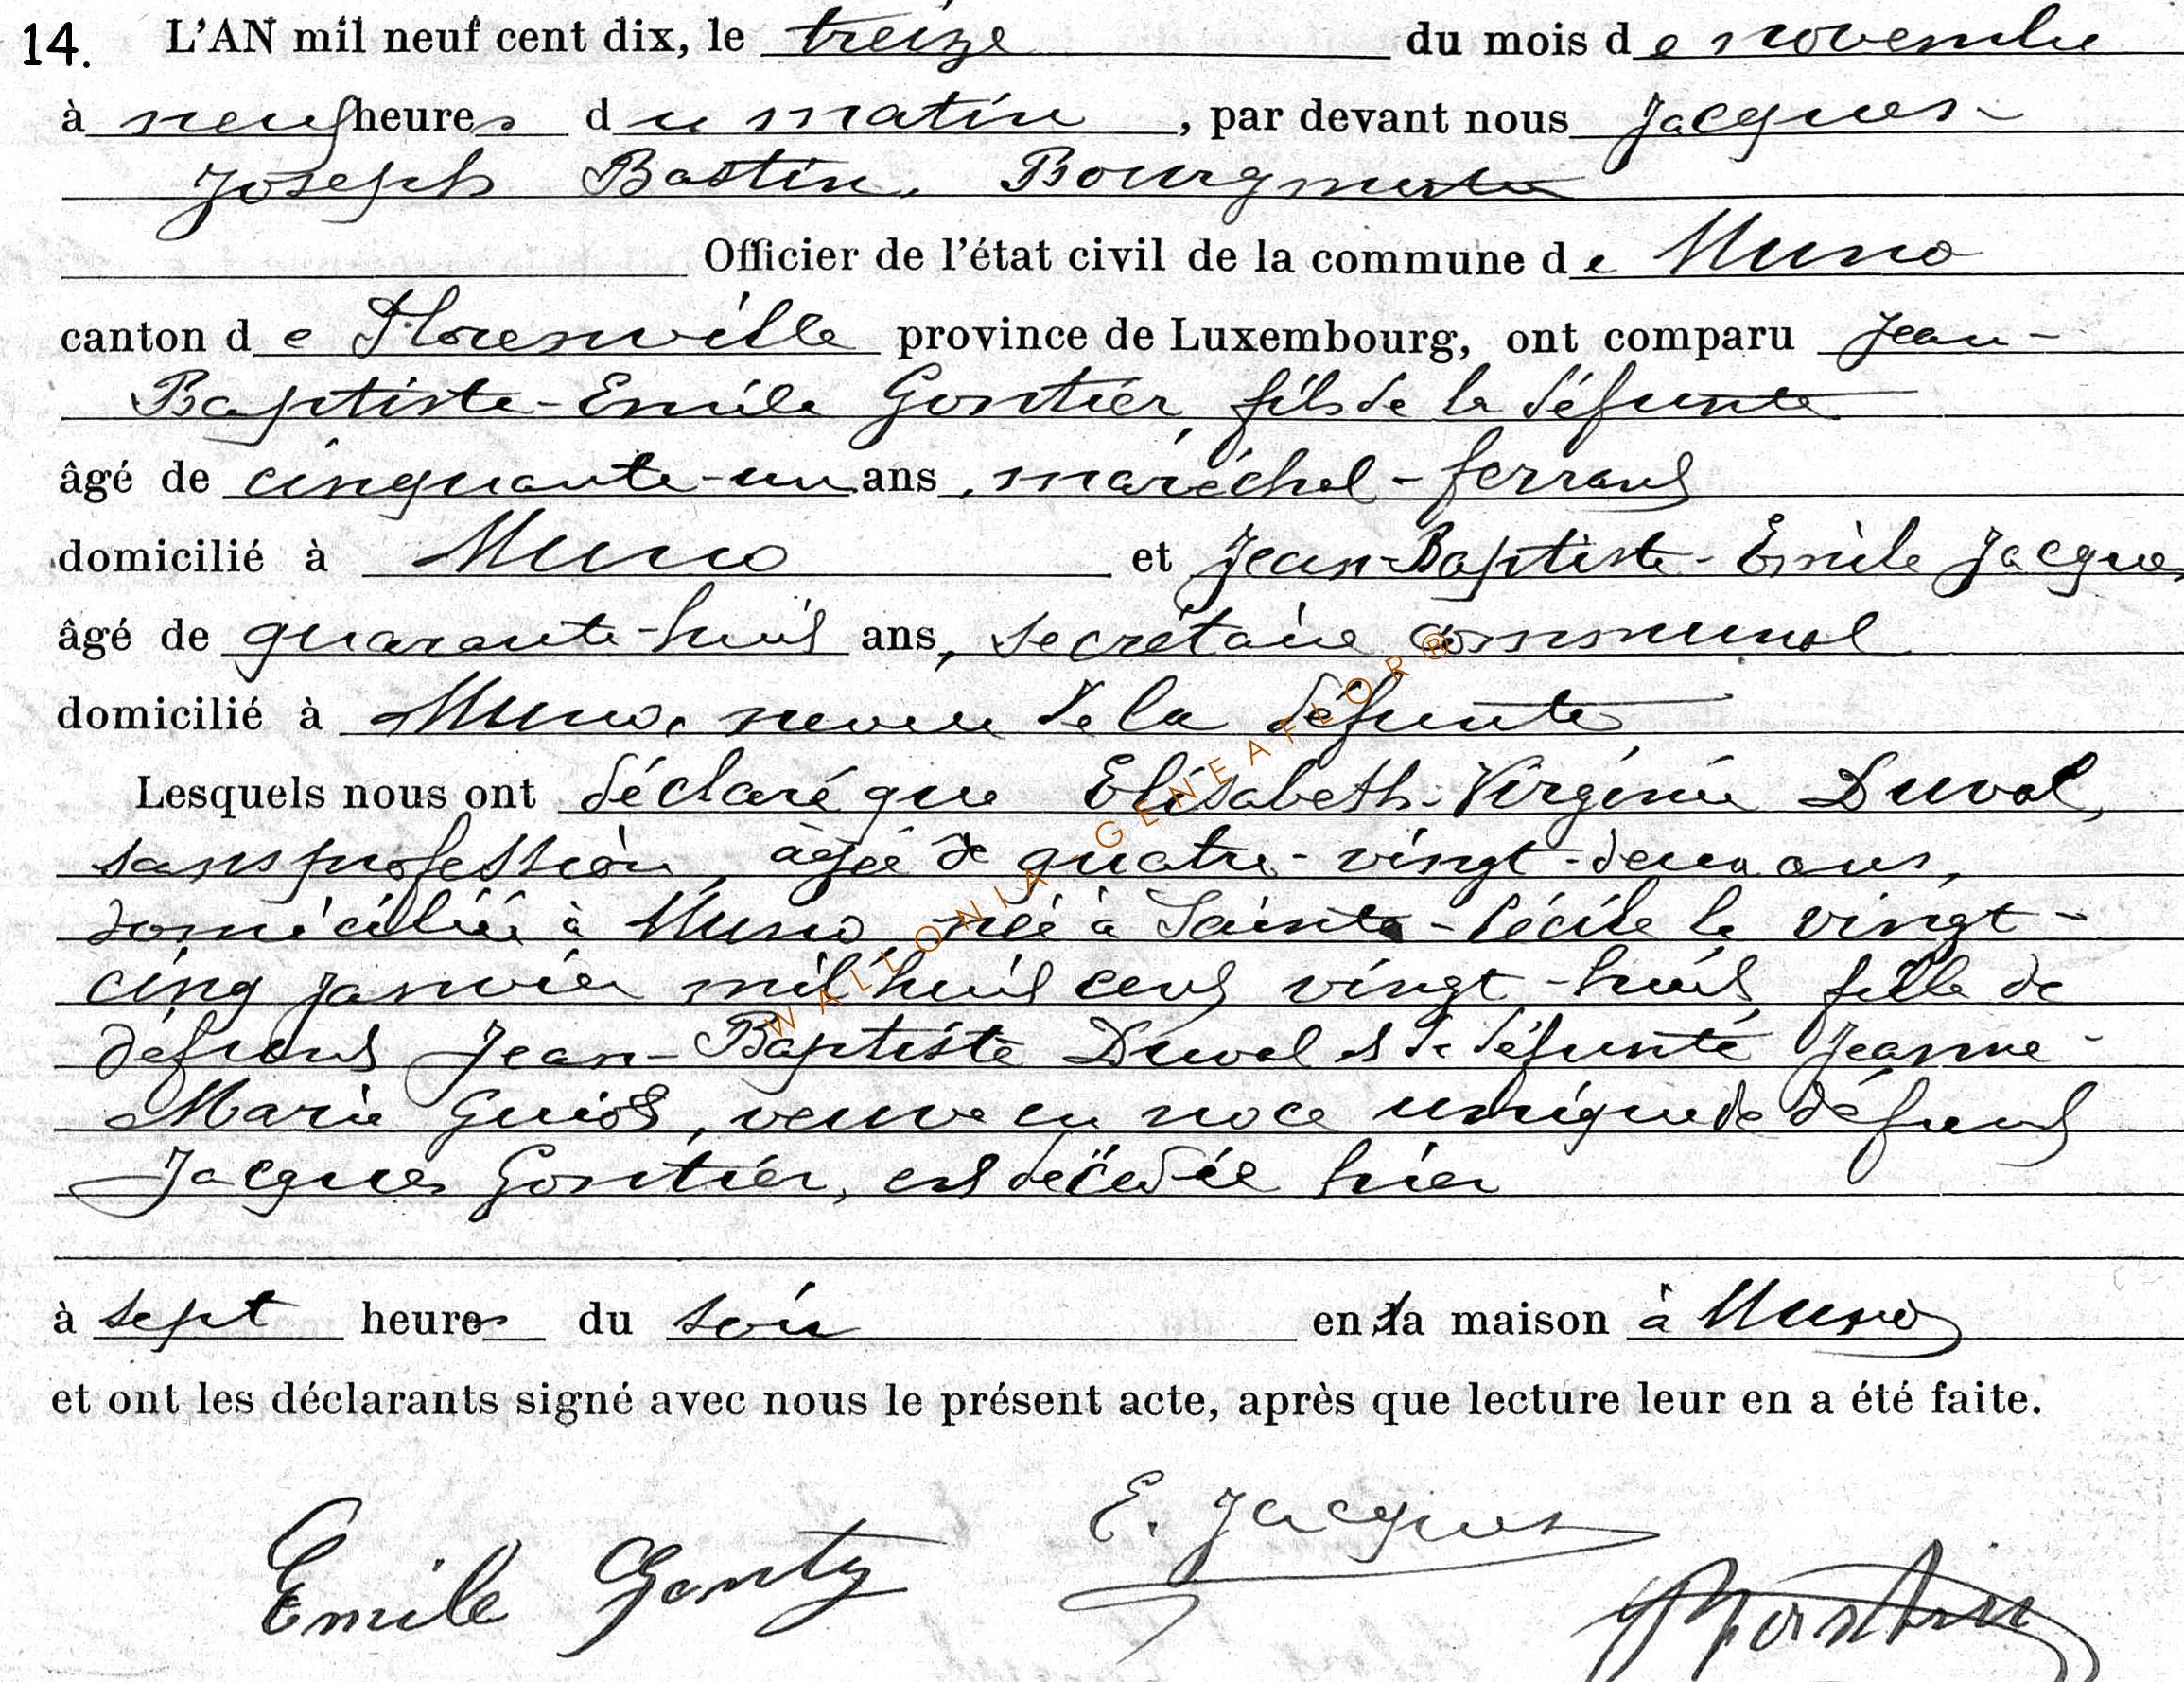 14. L'AN mil neuf cent dix, le treize du mois de novembre
à neuf heures du matin, par devant nous Jacques-
Joseph Bastin, Bourgmestre
Officier de l'état civil de la commune de Muno
canton de Florenville province de Luxembourg, ont comparu Jean-
Baptiste-Emile Gontier, fils de la défunte
âgé de cinquante-un ans, maréchal-ferrant
domicilié à Muno et Jean-Baptiste-Emile Jacques
âgé de quarante-huit ans, secrétaire communal
domicilié à Muno, neveu de la défunte
Lesquels nous ont déclaré que Elisabeth-Virginie Duval,
sans profession, âgée de quatre-vingt-deux ans,
domiciliée à Muno, née à Sainte-Cécile le vingt-
cinq janvier mil huit cent vingt-huit, fille de
défunt Jean-Baptiste Duval et de défunte Jeanne-
Marie Guiot, veuve en noce unique de défunt
Jacques Gontier, est décédée hier
à sept heures du soir en sa maison à Muno
et ont les déclarants signé avec nous le présent acte, après que lecture leur en a été faite.
E. Jacques
Emile Gonty
Bastin
WALLONIA GENEAFLOR®